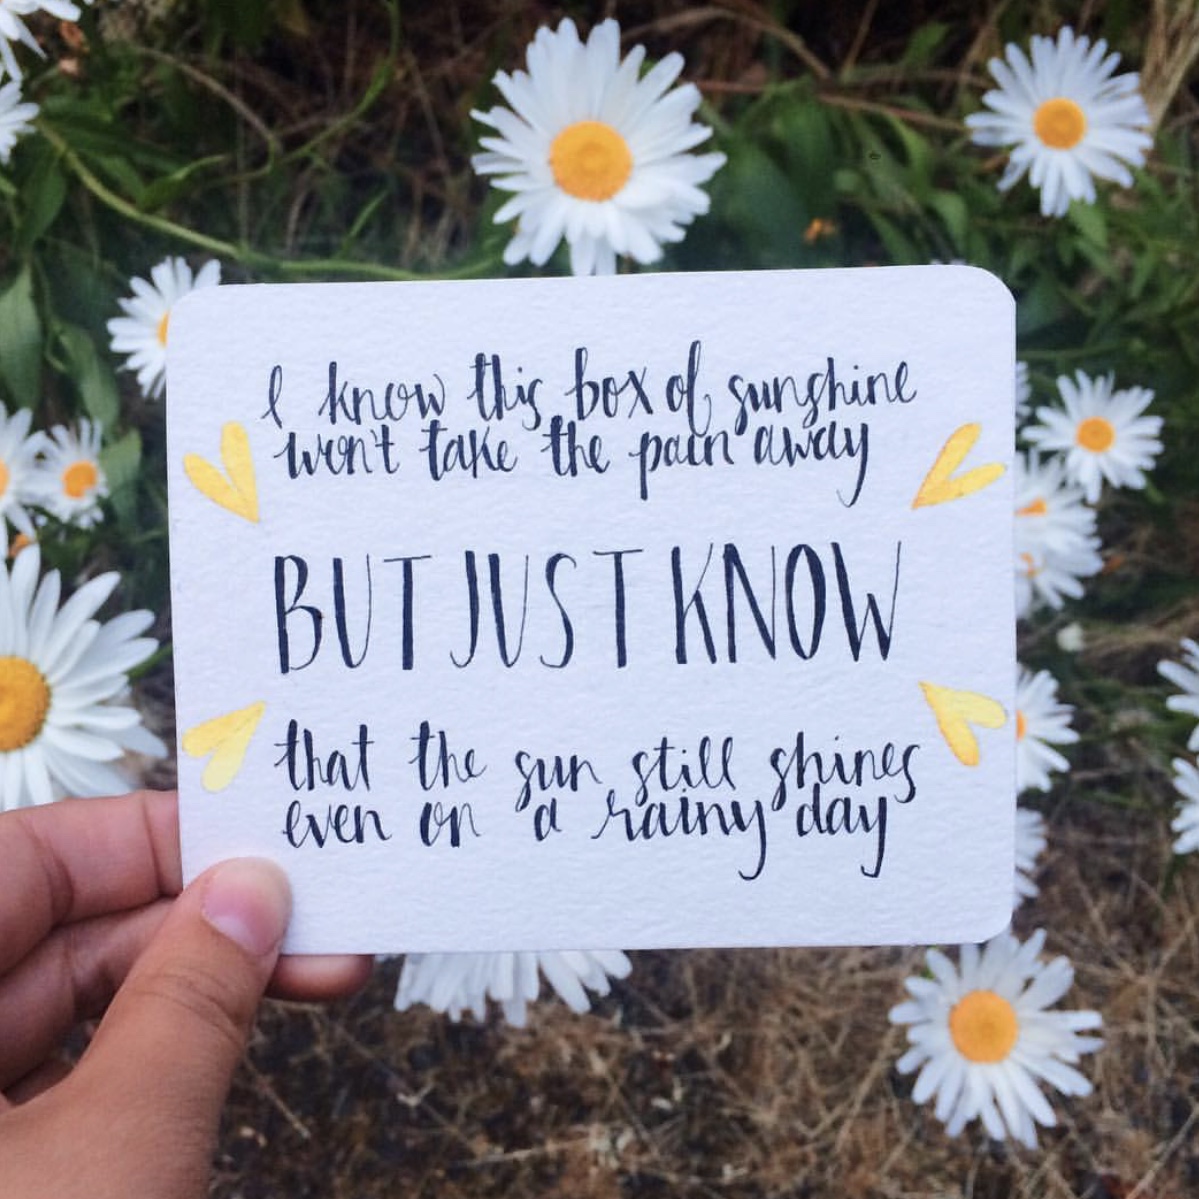 I know this box of sunshine
won't take the pain away
BUT JUST KNOW
that the sun still shines
even on a rainy day